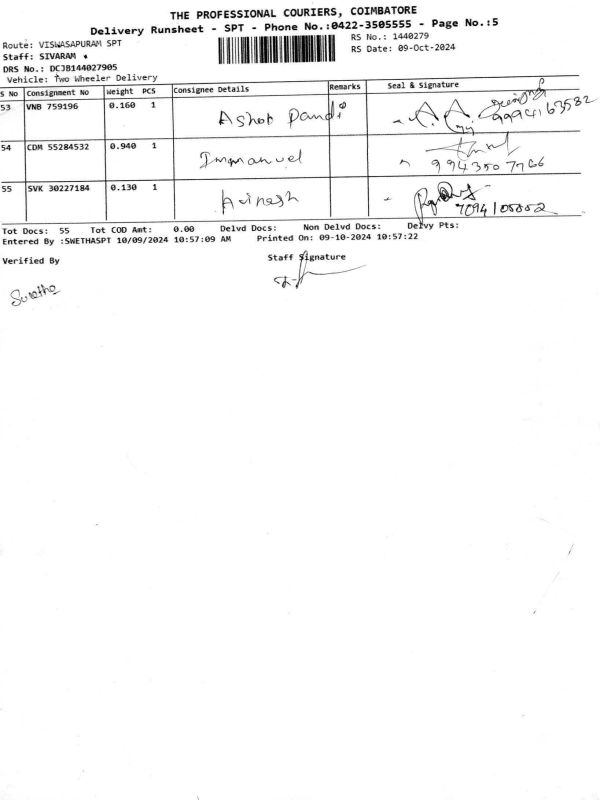 THE PROFESSIONAL COURIERS, COIMBATORE
Delivery Runsheet - SPT - Phone No.:0422-3505555 - Page No.:5
Route: VISWASAPURAM SPT RS No.: 1440279
Staff: SIVARAM RS Date: 09-Oct-2024
DRS No.: DCJB144027905
Vehicle: Two Wheeler Delivery
S No Consignment No Weight PCS Consignee Details Remarks Seal & Signature
53 VNB 759196 0.160 1 Ashok Pandi 9994163582
54 CDM 55284532 0.940 1 Immanuel 9943507966
55 SVK 30227184 0.130 1 Avinash
Tot Docs: 55 Tot COD Amt: 0.00 Delvd Docs: Non Delvd Docs: Delvy Pts:
Entered By :SWETHASPT 10/09/2024 10:57:09 AM Printed On: 09-10-2024 10:57:22
Verified By Staff Signature
Swetha